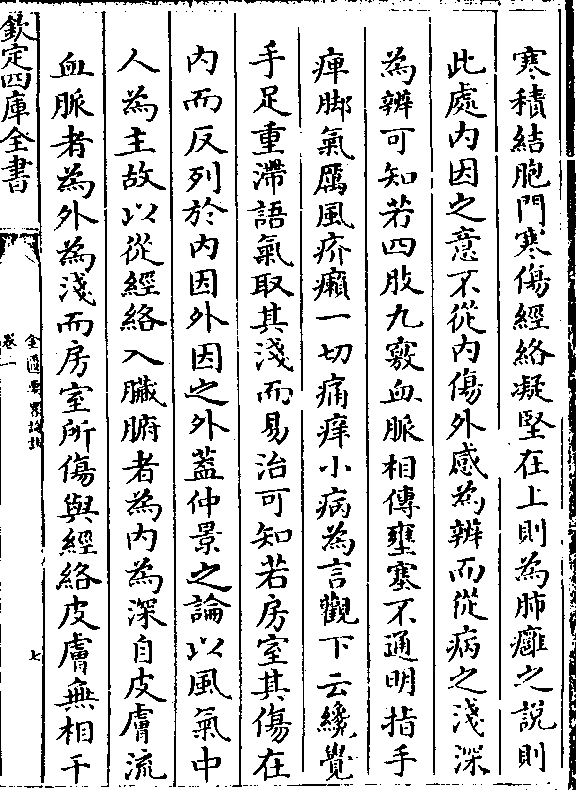 寒積結胞門寒傷經絡凝堅在上則為肺癰之說則
此處内因之意不從内傷外感為辨而從病之淺深
為辨可知若四肢九竅血脈相傳壅塞不通明指手
痺脚氣厲風疥癩一切痛痒小病為言觀下云纔覺
手足重滯語氣取其淺而易治可知若房室其傷在
内而反列於内因外因之外蓋仲景之論以風氣中
人為主故以從經絡入臟腑者為内為深自皮膚流
血脈者為外為淺而房室所傷與經絡皮膚無相干
欽定四庫全書
金匱要畧論註
卷一
七